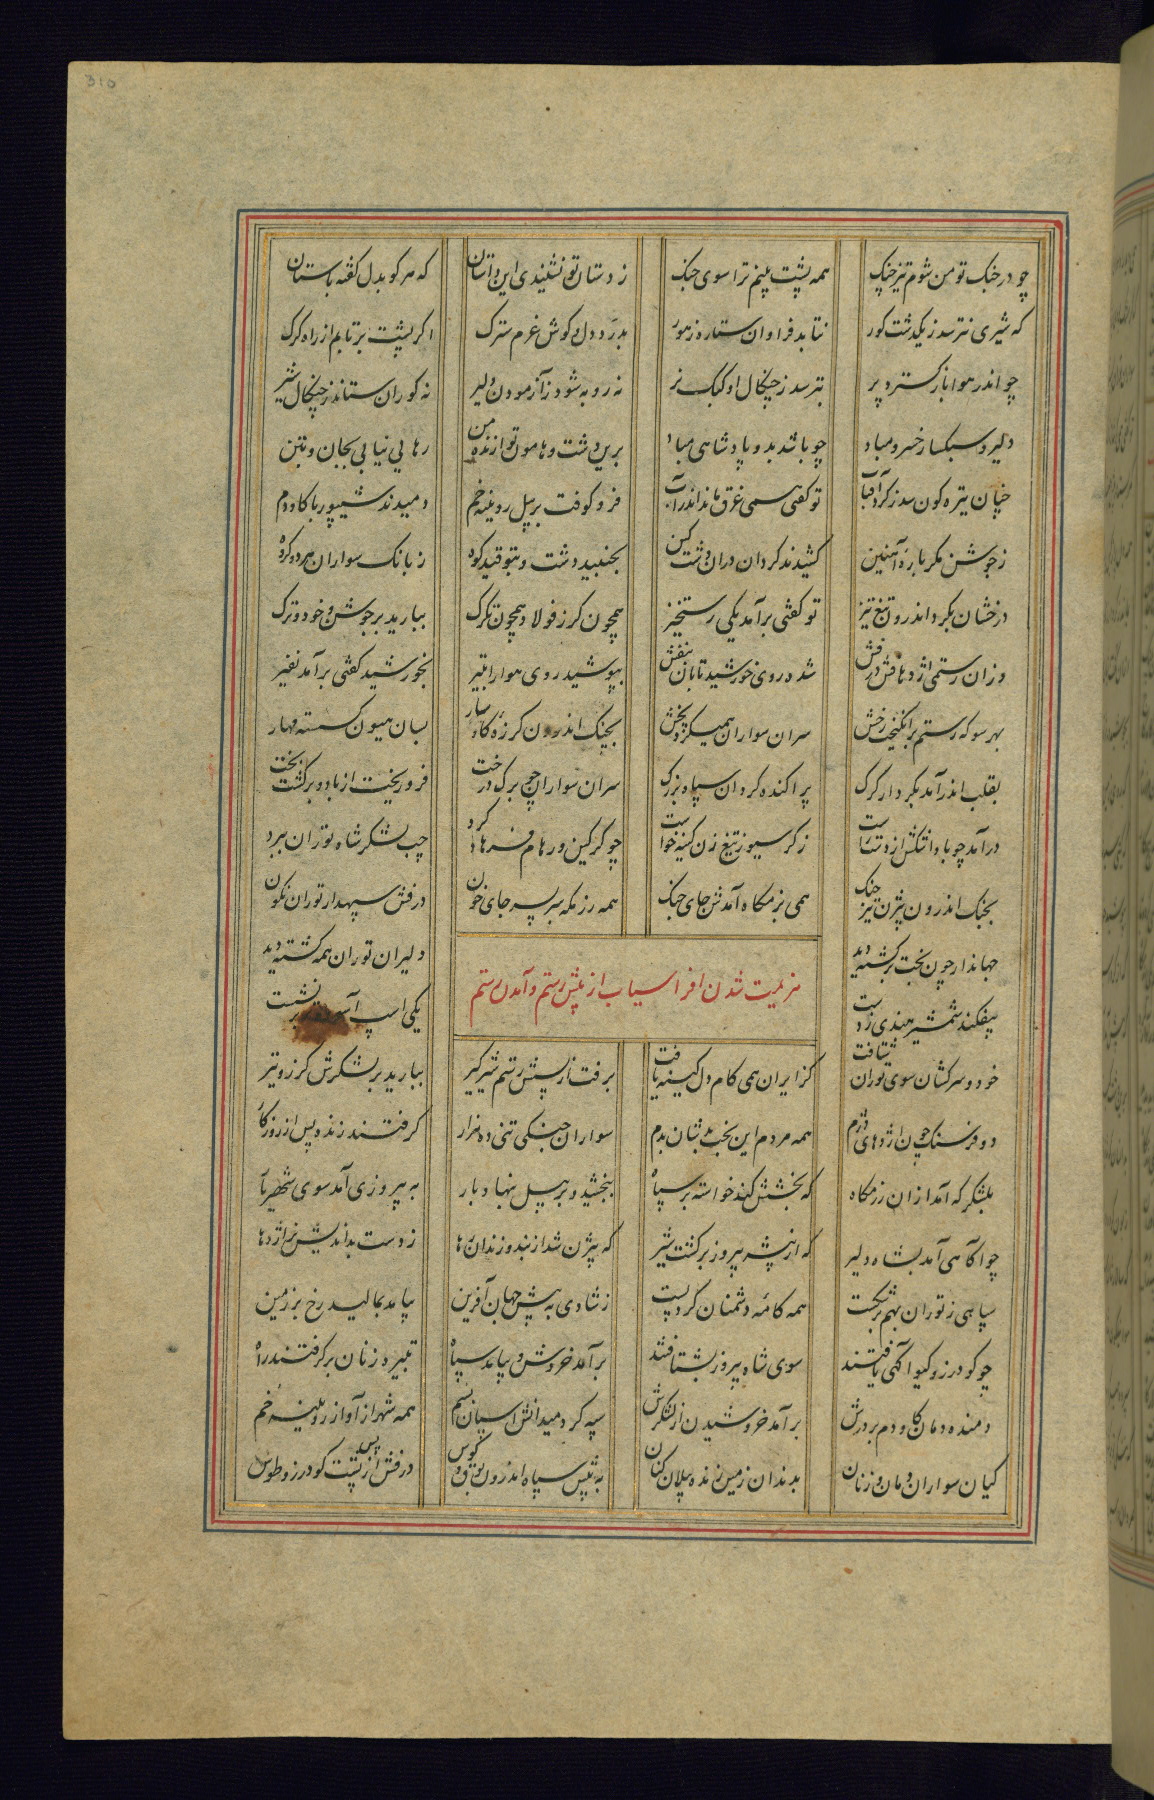 310
چو در جنگ تو من شوم تیزچنگ همه پشت بینم ترا سوی جنگ ز دستان تو نشنیدی این داستان که هر کو بدل گفته باستان
که شیری نترسد ز یکدشت کور نتابد فراوان ستاره ز هور بدرد دل و گوش غرم سترگ اگر بشت برتابم از راه گرگ
چو اندر هوا باز گسترد پر بترسد ز چنگال او کبک نر نه روبه شود ز آزمودن دلیر نه گوران ستانند ز چنگال شیر
دلیر و سبکسار خسرو مباد چو باشد بدو پادشاهی مباد برین دشت و هامون تو از زنده من رهایی نیابی بجان و بتن
چنان تیره گون سد ز گرد آفتاب تو گفتی همی غرق ماند اندر آب فرو کوفت بر پیل رویینه خم دمیدند شیپور با کاودم
ز جوشن مگر باره آهنین کشیدند گردان دران دشت کین بجنبید دشت و بتوفید کوه ز بانک سواران هر دو گروه
درخشان بگرد اندرون تیغ تیز تو گفتی برآمد یکی رستخیز همچون گرز فولاد همچون تگرگ ببارید بر جوشن و خود و ترگ
وزان رستمی اژدهافش درفش شده روی خورشید تابان بنفش بپوشید روی هوا را تیر بخورشید گفتی برآمد نفیر
بهر سو که رستم برانگیخت رخش سران سواران همیکرد پخش بجنگ اندرون گرزه گاوسار بسان هیون گسسته مهار
بقلب اندر آمد بکردار گرگ پراکنده کردان سپاه بزرگ سران سواران چو برگ درخت فرو ریخت از باد و برگشت بخت
درآمد چو باد اشکش از دست راست ز گرسیوز تیغ زن کینه خواست چو گرگین و رهام فرهاد گرد چپ لشکر شاه توران ببرد
بجنگ اندرون بیژن تیز چنگ همی بزمگاه آمدش جای جنگ همه رزمگه سربسر جای خون درفش سپهدار توران نگون
جهاندار چون بخت برگشته دید دلیران توران همه کشته دید
هزیمت شدن افراسیاب از پیش رستم و آمدن رستم
بیفکند شمشیر هندی ز دست یکی اسپ آسوده بر نشست
خود و سرکشان سوی توران شتافت کز ایران همی کام دل کینه یافت برفت از پسش رستم شیرگیر ببارید بر لشکرش گرز و تیر
دو فرسنگ چون اژدهای دژم همه مردم این بخت بدشان بدم سواران جنگی تنی ده هزار گرفتند زنده پس از روزگار
بلشکرگه آمد ازان رزمگاه که بخشش کند خواسته بر سپاه ببخشید و بر پیل بنهاد بار به پیروزی آمد سوی شهریار
چو آگاهی آمد بشاه دلیر که از بیشه پیروز برگشت شیر که بیژن شد از بند و زندان رها ز دست بداندیش نر اژدها
سپاهی ز توران بهم برشکست همه کامه دشمنان کرد پست ز شادی به پیش جهان آفرین بیامد بمالید رخ بر زمین
چو گودرز و گیو آگهی یافتند سوی شاه پیروز بشتافتند برآمد خروش و بیامد سپاه تبیره زنان برگرفتند راه
دمنده دمان کاودم بر درش برآمد خروشیدن از لشکرش سیه کرد میدانش اسپان بسم همه شهر از آواز رویینه خم
کیان سواران دمان و زنان بدندان زمین ژنده پیلان کنان به پیش سپاه اندرون بوق و کوس درفش از پس پشت گودرز و طوس